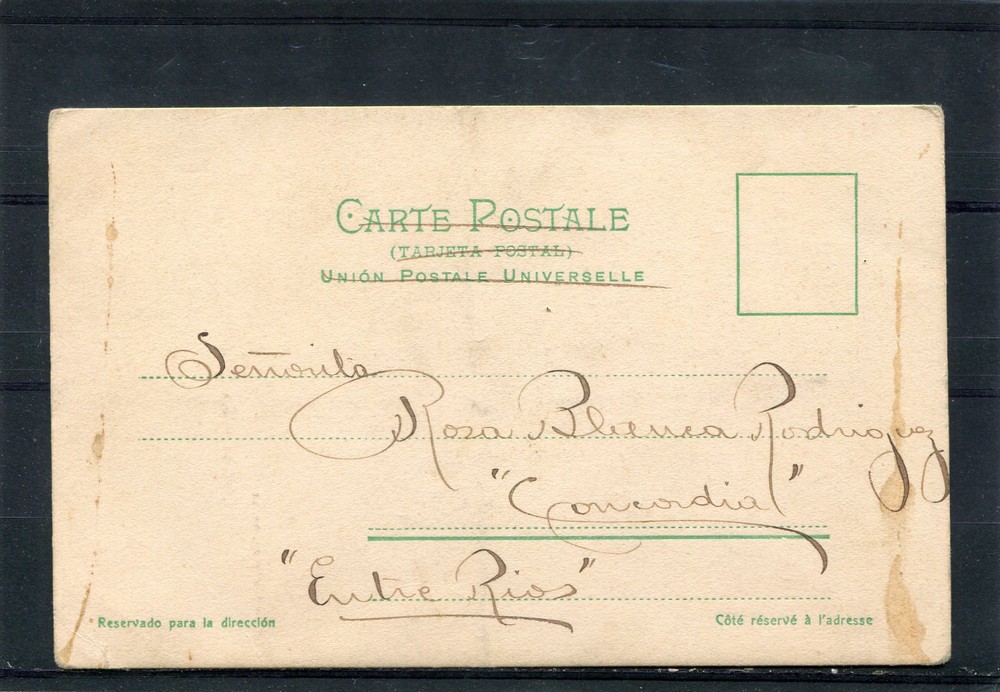 CARTE POSTALE
(TARJETA POSTAL)
UNIÓN POSTALE UNIVERSELLE
Señorita
Rosa Blanca Rodriguez
"Concordia"
"Entre Rios"
Reservado para la dirección
Côté réservé à l'adresse